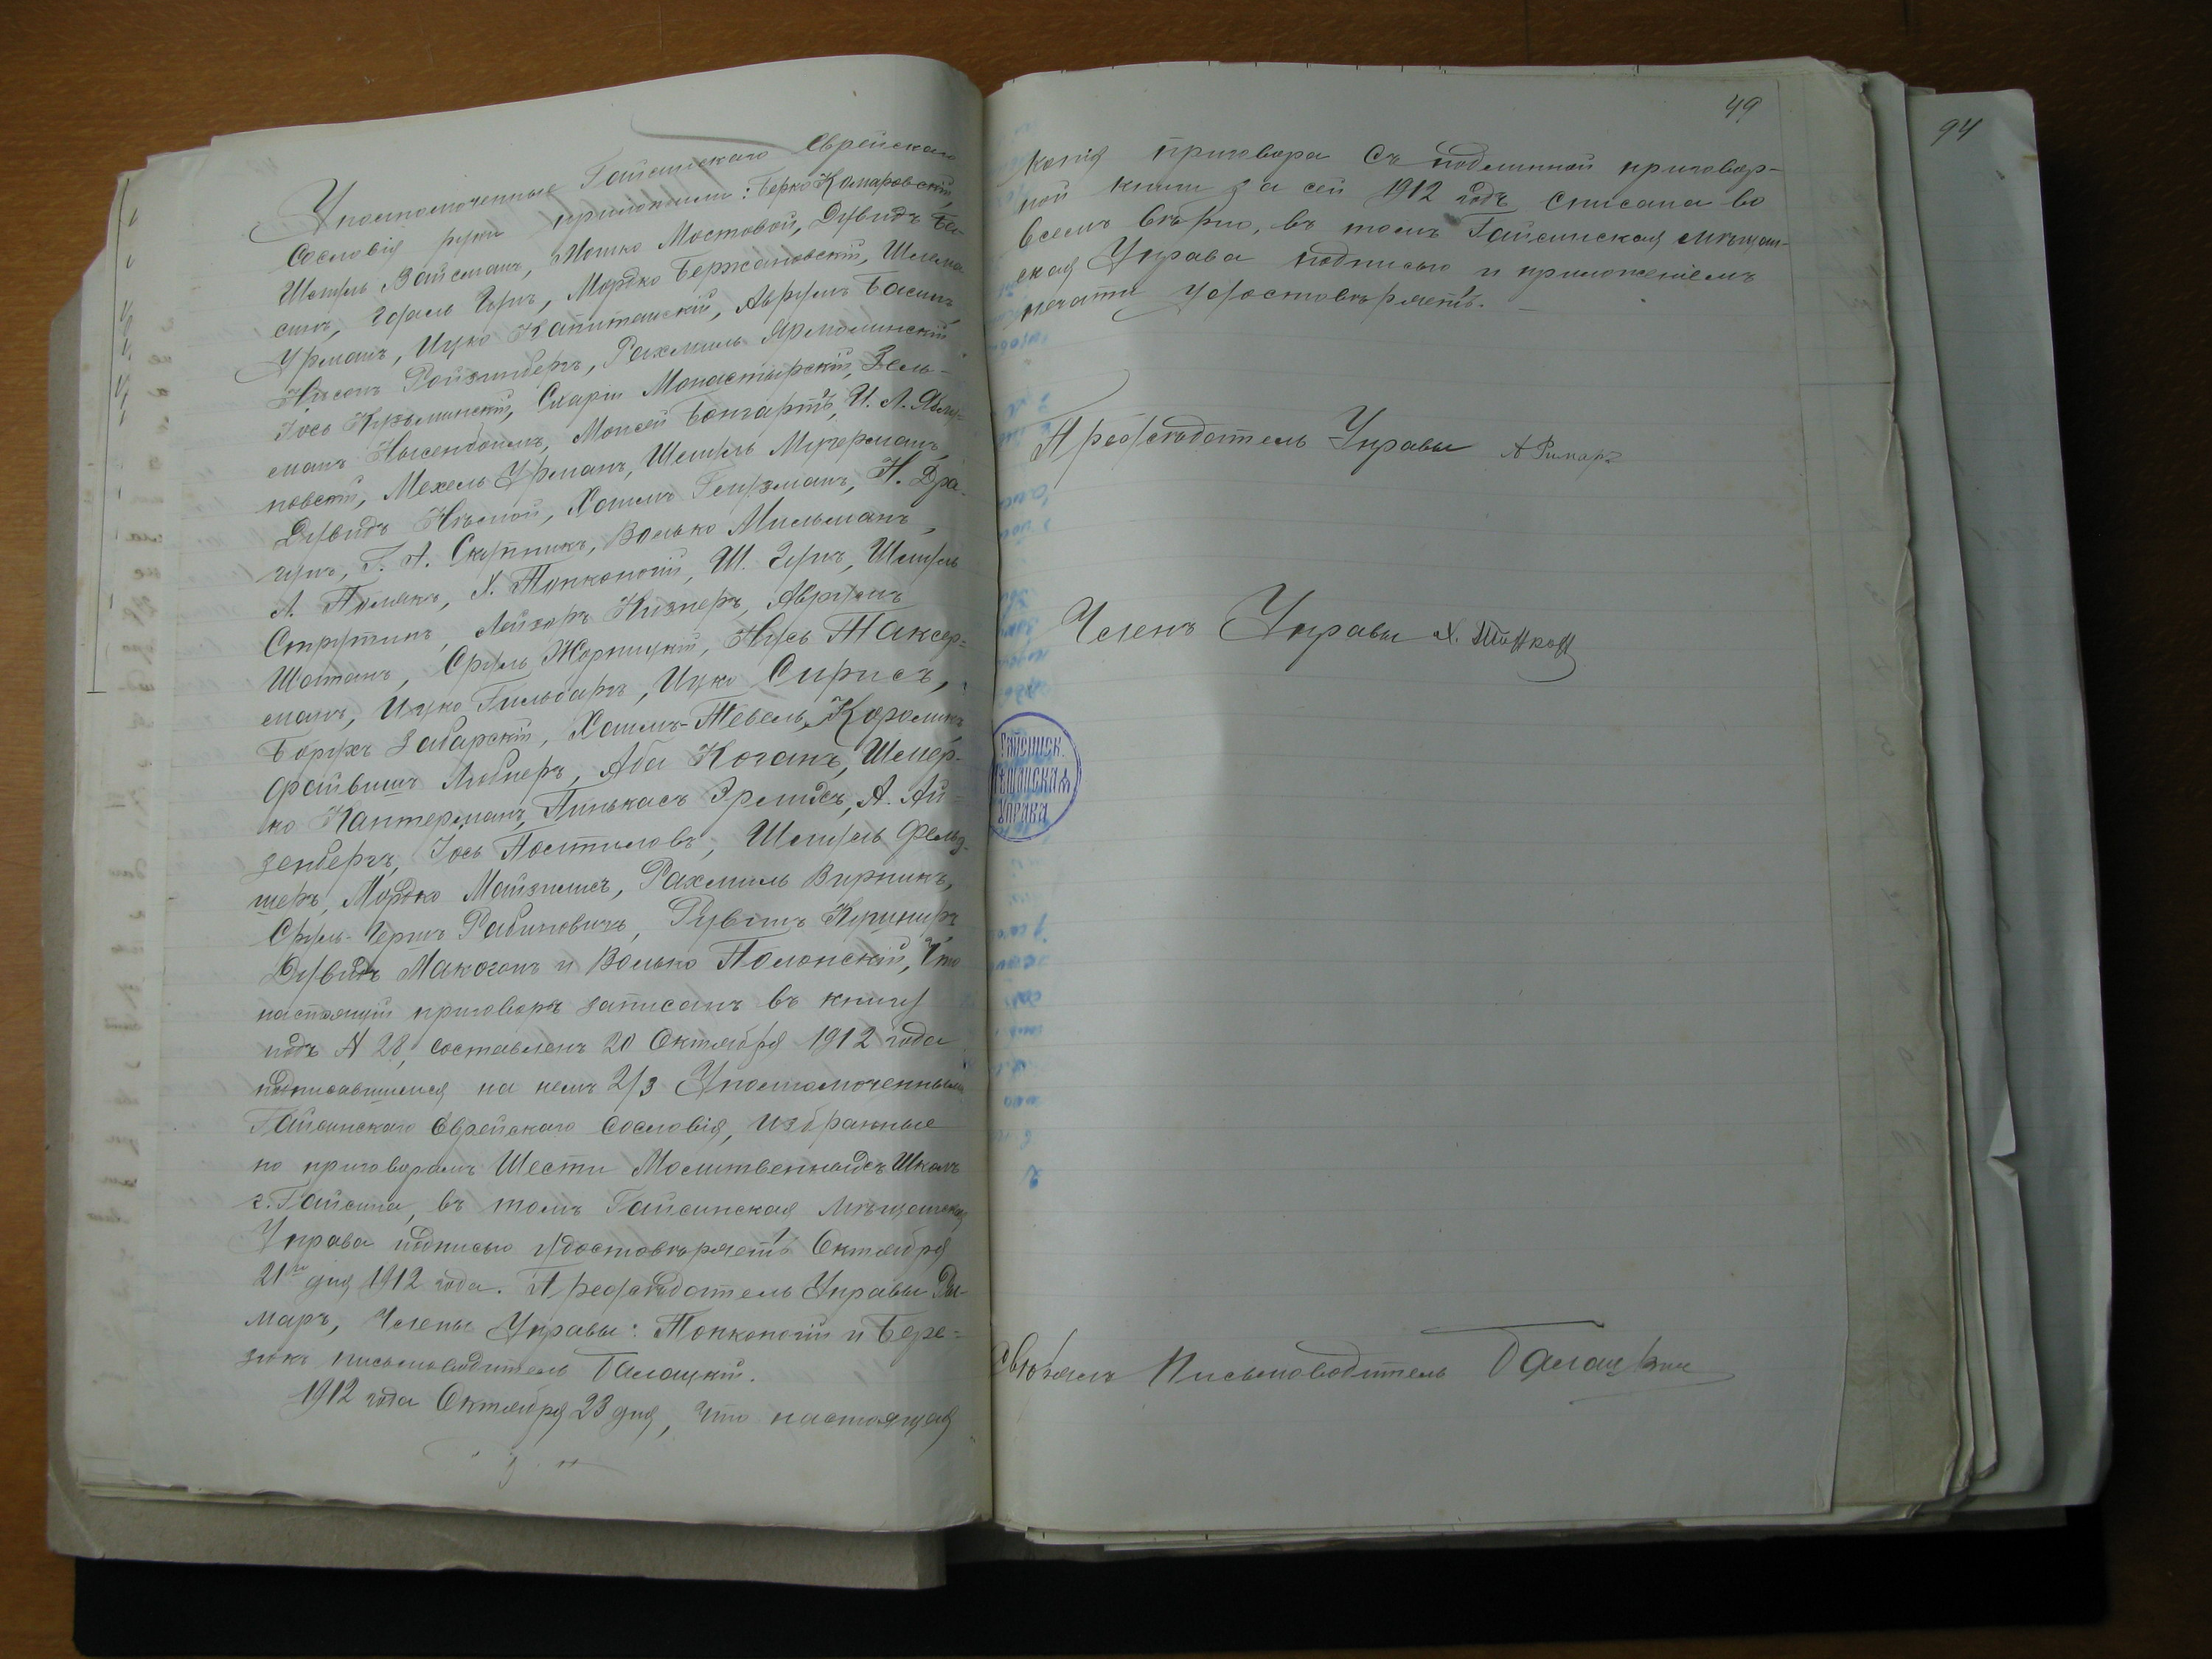 Уполномоченные Гайсинскаго Еврейскаго
Сословія руки приложили: Берко Комаровскій,
Шмуль Вайсманъ, Мошко Мостовой, Дувидъ Ба-
синъ, Юдель Гунъ, Мордко Бержановскій, Шлема
Урманъ, Ицко Капиташскій, Аврумъ Басинъ,
Нысонъ Ройзинбергъ, Рахмиль Ярмолинскій
Іось Кузьминскій, Схарія Монастырскій, Зель-
манъ Нысенбоймъ, Моисей Бонгартъ, И. Л. Яблу-
новскій, Мехель Урманъ, Шмуль Мучерманъ,
Дувидъ Нѣмой, Хаимъ Гейфманъ, Н. Дра-
гунъ, Г. А. Скутникъ, Волько Мильманъ,
Л. Полякъ, Х. Тонконогій, Ш. Гунъ, Шмуль
Струтинъ, Лейзоръ Кизнеръ, Аврумъ
Шойманъ, Сруль Жорницкій, Нусь Таксер-
манъ, Ицко Гильбаръ, Ицко Сирисъ,
Борухъ Забарскій, Хаимъ-Тевель Короликъ,
Файвишъ Любнеръ, Аба Коганъ, Шмер-
ко Кантерманъ, Пинькасъ Эрлихъ, А. Ай-
зенбергъ, Іось Постиловъ, Шмуль Фельд-
шеръ, Мордко Майзлишъ, Рахмиль Вирникъ,
Сруль-Гершъ Рабиновичъ, Рувинъ Куцниръ
Дувидъ Макогонъ и Волько Полонскій, Что
настоящій приговоръ записанъ въ книгу
подъ № 28, составленъ 20 Октября 1912 года
подписавшимися на немъ 2/3 Уполномоченными
Гайсинскаго Еврейскаго Сословія, избранные
по приговорамъ Шести Молитвенныхъ Школъ
г. Гайсина, въ томъ Гайсинская Мѣщанская
Управа подписью удостовѣряетъ Октября
21го дня 1912 года. Предсѣдатель Управы Ры-
маръ, Члены Управы: Тонконогій и Бере-
зюкъ письмоводитель Балацкій.
1912 года Октября 23 дня, Что настоящая
49
94
копія приговора съ подлинной приговор-
ной книги за сей 1912 годъ списана во
всемъ вѣрно, въ томъ Гайсинская мѣщан-
ская Управа подписью и приложеніемъ
печати удостовѣряетъ.
Предсѣдатель Управы А Рымаръ
Членъ Управы Х.
Гайсинск.
Мѣщанская
Управа
Свѣрялъ Письмоводитель Балацкій